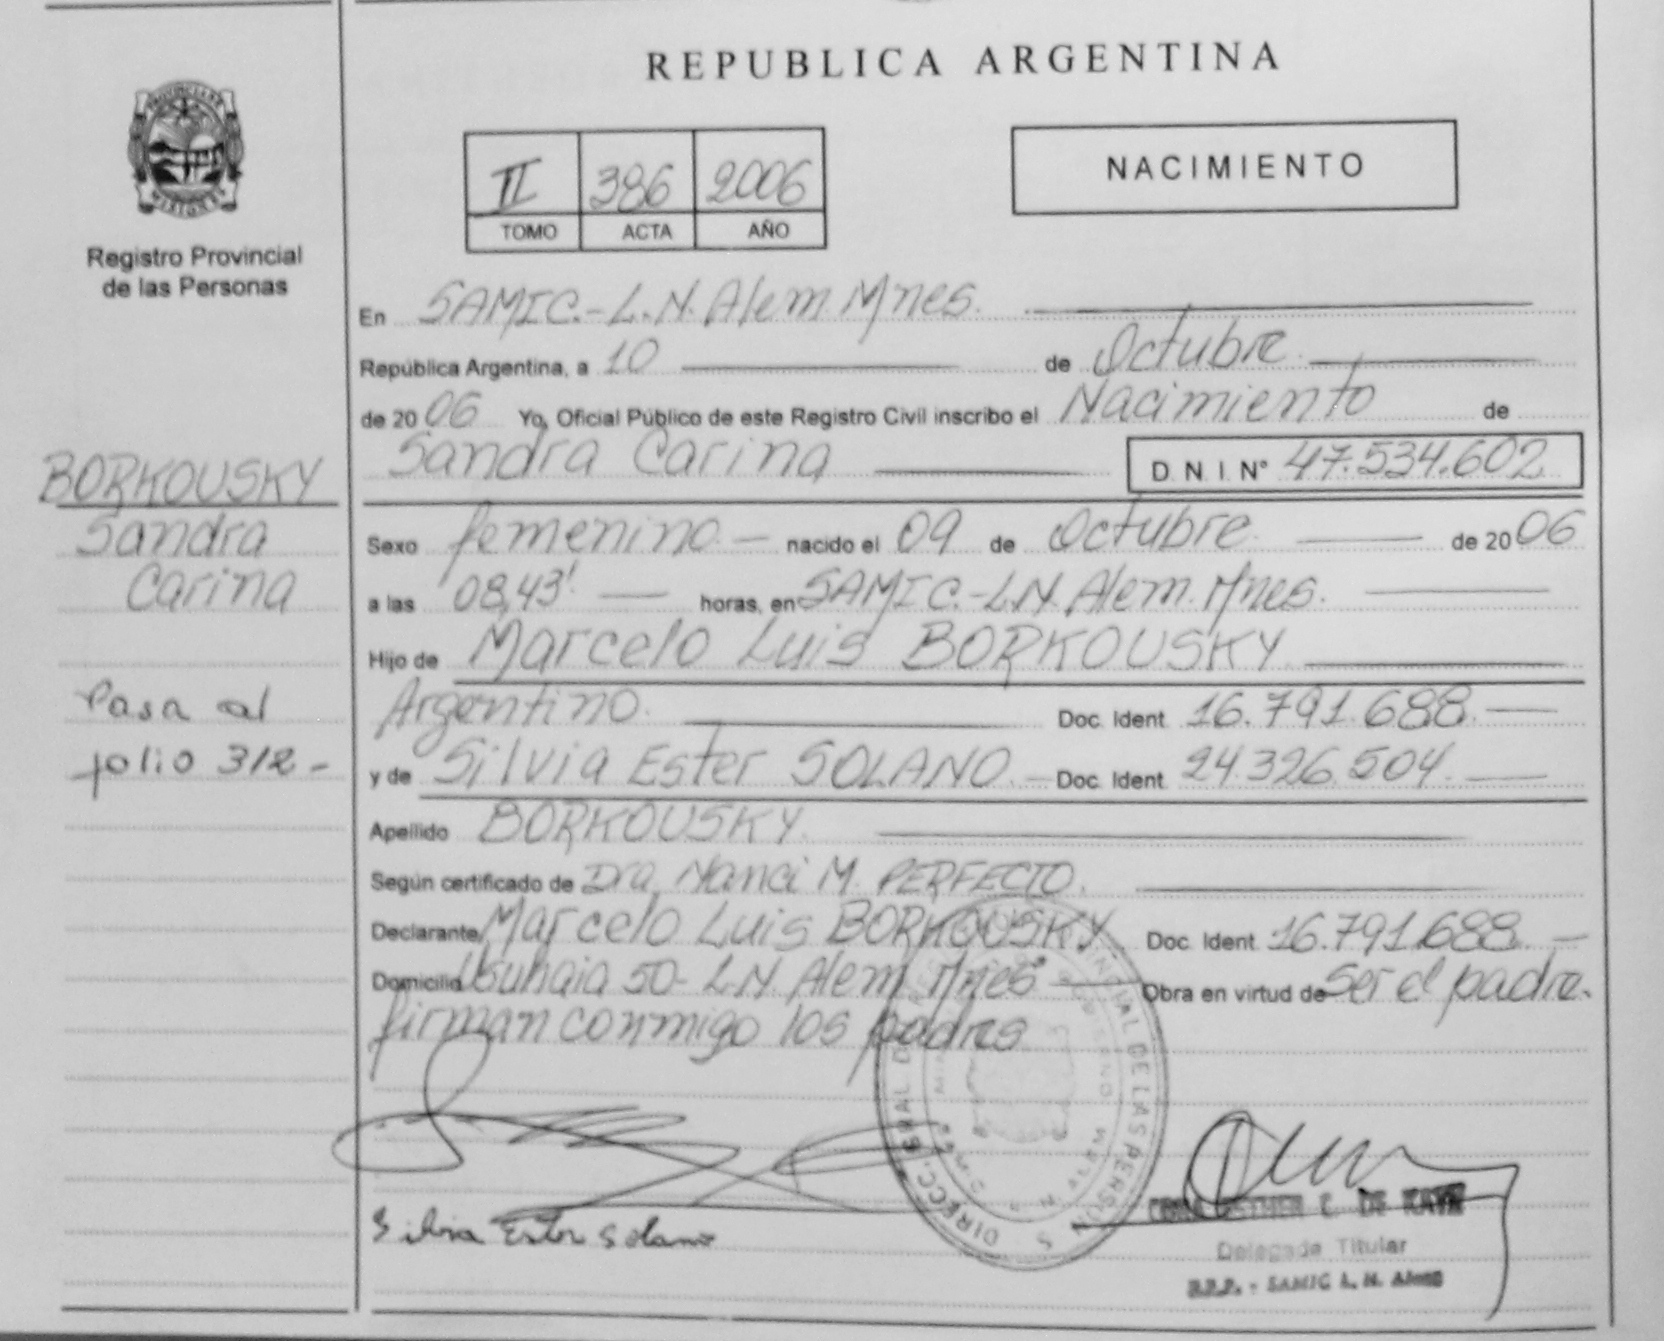 REPUBLICA ARGENTINA
PROVINCIA DE
MISIONES
Registro Provincial
de las Personas
II 386 2006
TOMO ACTA AÑO
NACIMIENTO
En SAMIC.-L.N. Alem. Mnes.
República Argentina, a 10 de Octubre
de 2006 Yo, Oficial Público de este Registro Civil inscribo el Nacimiento de
Sandra Carina D. N. I. N° 47.534.602
BORKOUSKY
Sandra
Carina
Pasa al
folio 312-
Sexo femenino nacido el 09 de Octubre de 2006
a las 08,43' horas, en SAMIC.-L.N. Alem. Mnes.
Hijo de Marcelo Luis BORKOUSKY
Argentino. Doc. Ident 16.791.688.
y de Silvia Ester SOLANO. Doc. Ident. 24.326.504.
Apellido BORKOUSKY.
Según certificado de Dra. Nanci M. PERFECTO.
Declarante Marcelo Luis BORKOUSKY. Doc. Ident 16.791.688.
Domicilio Usuhaia 50- L.N. Alem Mnes Obra en virtud de Ser el padre.
firman conmigo los padres
Silvia Ester Solano
DE
Delegada Titular
R.P.P. - SAMIC L. N. Alem